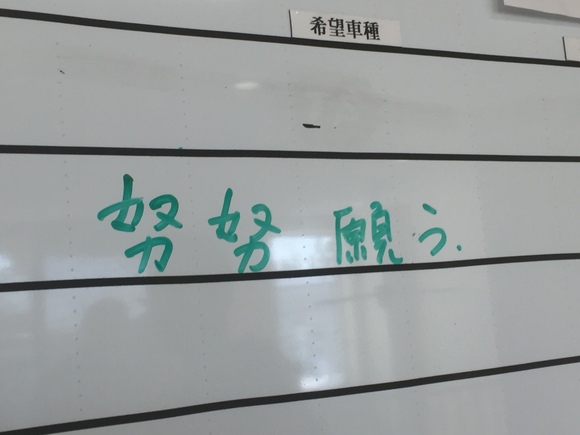 希望車種
努努 願う.